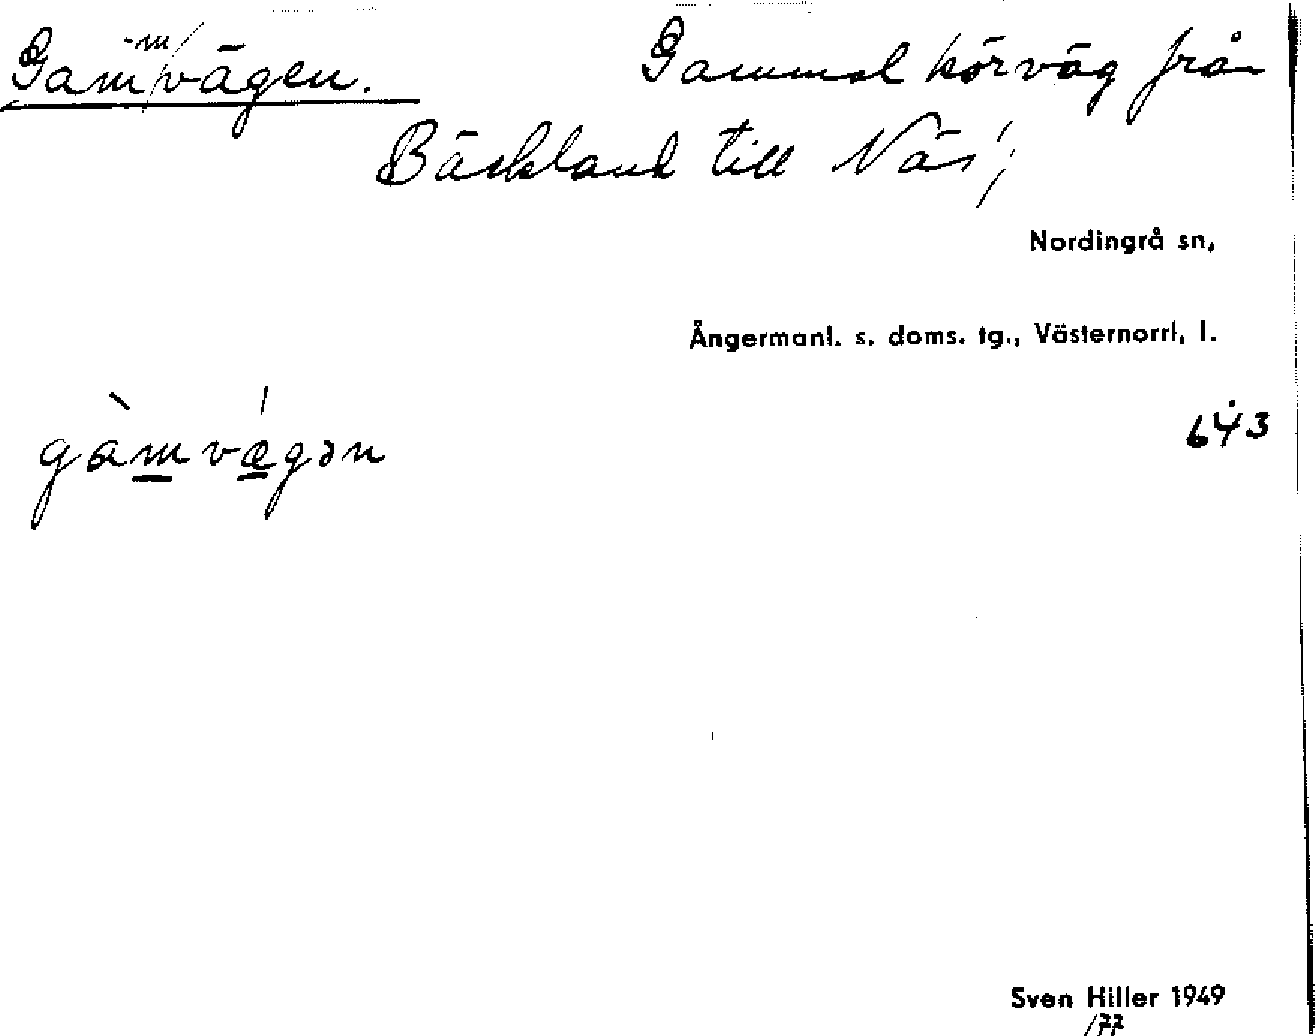 -m/
Gam/vägen. Gammal körväg från
Bäckland till Näs;
Nordingrå sn,
Ångermanl. s. doms. tg., Västernorrl. l.
gàmvǽgən
643
Sven Hiller 1949
/77